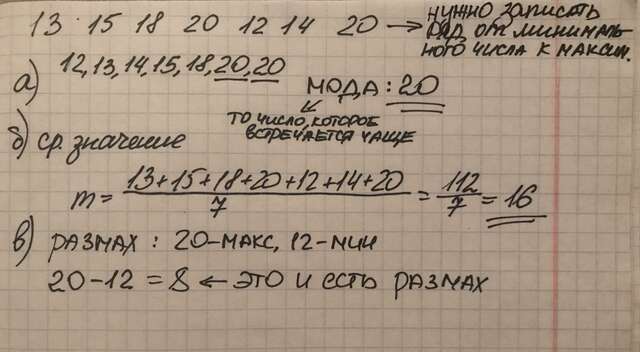 13 · 15 18 20 12 14 20 → нужно записать
ряд от минималь-
ного числа к максим.
а) 12, 13, 14, 15, 18, 20, 20
мода: 20
то число, которое
встречается чаще
б) ср. значение
m = 13+15+18+20+12+14+20 / 7 = 112/7 = 16
в) размах: 20-макс, 12-мин
20-12 = 8 ← это и есть размах